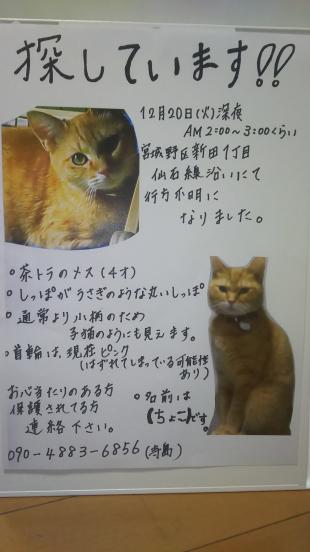 探しています!!
12月20日(火)深夜
AM2:00〜3:00くらい
宮城野区新田1丁目
仙石線沿いにて
行方不明に
なりました。
○茶トラのメス(4才)
○しっぽがうさぎのような丸いしっぽ
○通常より小柄のため
子猫のようにも見えます。
○首輪は、現在ピンク
(はずれてしまっている可能性あり)
お心当たりのある方
保護されてる方
連絡下さい。
○名前は
【ちょこ】です。
090-4883-6856(寺島)